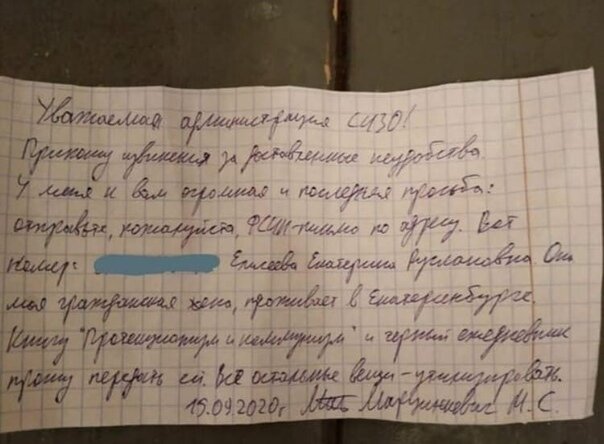 Уважаемая администрация СИЗО!
Приношу извинения за доставленные неудобства.
У меня к вам огромная и последняя просьба:
отправьте, пожалуйста, ФСИН-письмо по адресу. Вот
номер: Елисеева Екатерина Руслановна Она
моя гражданская жена, проживает в Екатеринбурге.
Книгу "Протекционизм и коммунизм" и черный ежедневник
прошу передать ей. Все остальные вещи - утилизировать.
15.09.2020г. Марцинкевич М.С.